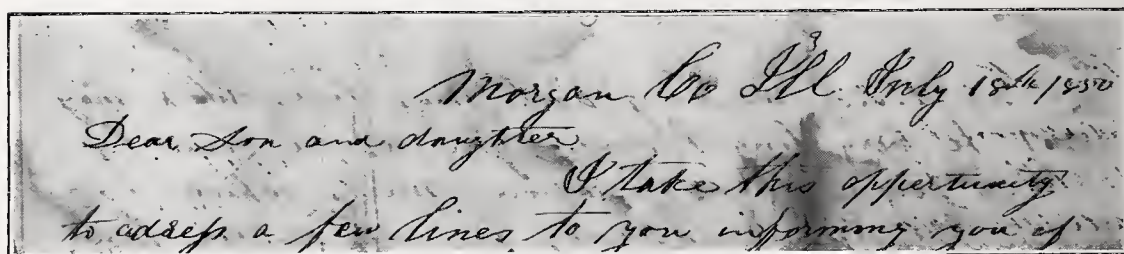 Morgan Co Ill July 18th 1850
Dear Son and daughter
I take this oppertunity
to adress a few lines to you informing you of